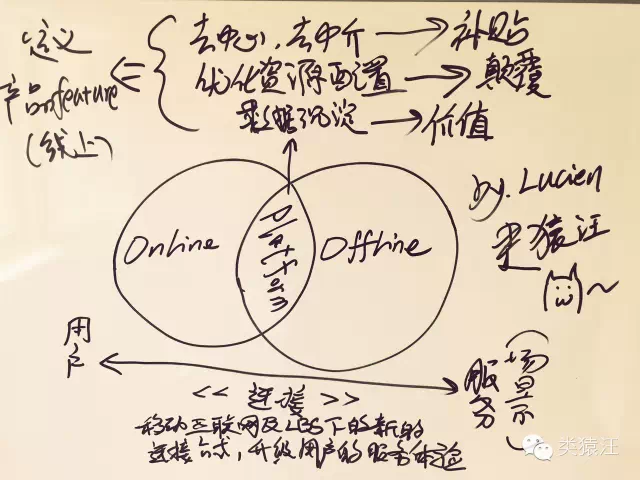 去中心,去中介 → 补贴
优化资源配置 → 颠覆
数据沉淀 → 价值
定义
产品feature
(线上)
Online
Platform
Offline
by. Lucien
类猿汪
用户
<< 连接 >>
服务
(场景示)
移动互联网及LBS下的新的
连接方式,升级用户的服务体验
类猿汪